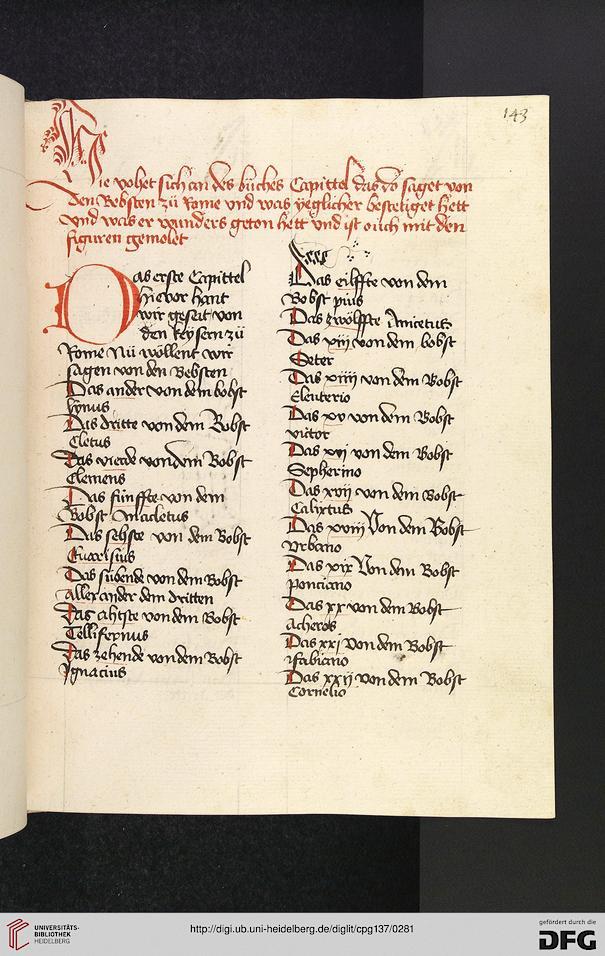 143
Hie vohet sich an des buches Capittel das do saget von
den Bobsten zů Rome vnd was yeglicher bestetiget hett
vnd was er wunders geton hett vnd ist ouch mit den
figuren gemolet
Das erste Capittel
hievor hant
wir geseit von
den keysern zů
Rome Nů wöllent wir
sagen von den Bebsten
Das ander von dem bobst
lynus
Das dritte von dem Bobst
Cletus
Das vierde von dem Bobst
Clemens
Das fünffte von dem
Bobst Anacletus
Das sehste von dem Bobst
Euaristus
Das sübende von dem Bobst
allexander dem dritten
Das ahtste von dem Bobst
Tellisferus
Das zehende von dem Bobst
Ignacius
Das eilffte von dem
Bobst pius
Das zwölffte Anicetus
Das xiij von dem bobst
Seter
Das xiiij von dem Bobst
Eleuterio
Das xv von dem Bobst
victor
Das xvj von dem Bobst
Sepherino
Das xvij von dem Bobst
Calixtus
Das xviij Von dem Bobst
Vrbano
Das xix Von dem Bobst
ponciano
Das xx von dem Bobst
acheros
Das xxj von dem Bobst
Fabiano
Das xxij von dem Bobst
Cornelio
UNIVERSITÄTS-
BIBLIOTHEK
HEIDELBERG
http://digi.ub.uni-heidelberg.de/diglit/cpg137/0281
gefördert durch die
DFG